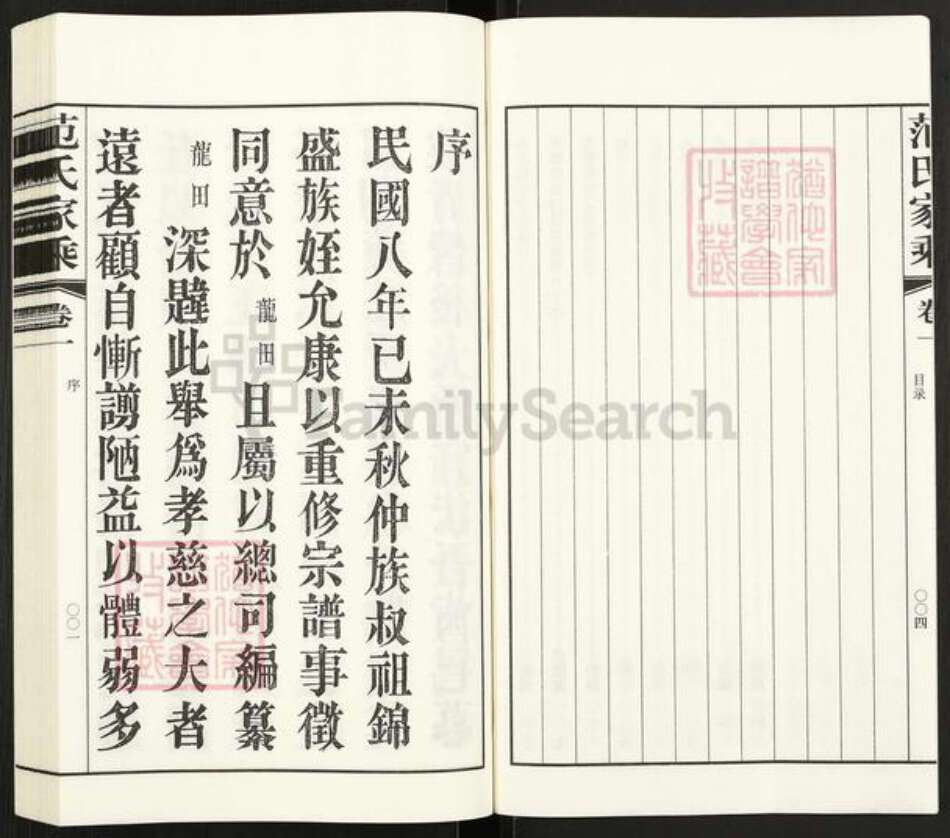 范氏家乘
卷一
目录
〇〇四
序
民國八年己未秋仲族叔祖錦
盛族姪允康以重修宗譜事徵
同意於龍田且屬以總司編纂
龍田深韙此舉爲孝慈之大者
遠者顧自慚謭陋益以體弱多
范氏家乘
卷一
序
〇〇一
FamilySearch